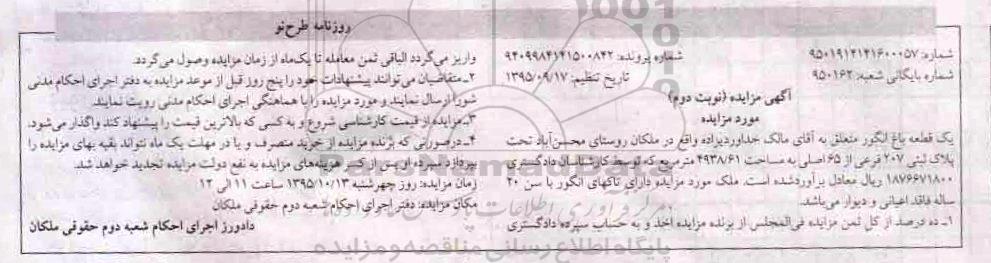 روزنامه طرح‌نو
شماره: ۹۵۰۱۹۱۲۱۴۱۶۰۰۰۵۷ شماره پرونده: ۹۴۰۹۹۸۴۱۴۱۵۰۰۸۴۲
شماره بایگانی شعبه: ۹۵۰۱۶۲ تاریخ تنظیم: ۱۳۹۵/۰۹/۱۷
آگهی مزایده (نوبت دوم)
مورد مزایده
یک قطعه باغ انگور متعلق به آقای مالک خداوردیزاده واقع در ملکان روستای محسن‌آباد تحت
پلاک ثبتی ۲۰۷ فرعی از ۶۵ اصلی به مساحت ۴۹۳۸/۶۱ مترمربع که توسط کارشناسان دادگستری
۱۸۷۶۶۷۱۸۰۰ ریال معادل برآورد شده است. ملک مورد مزایده دارای تاکهای انگور با سن ۲۰
ساله فاقد اعیانی و دیوار می‌باشد.
۱ـ ده درصد از کل ثمن مزایده فی‌المجلس از برنده مزایده اخذ و به حساب سپرده دادگستری
واریز می‌گردد الباقی ثمن معامله تا یک‌ماه از زمان مزایده وصول می‌گردد.
۲ـ متقاضیان می‌توانند پیشنهادات خود را پنج روز قبل از موعد مزایده به دفتر اجرای احکام مدنی
شورا ارسال نمایند و مورد مزایده را با هماهنگی اجرای احکام مدنی رویت نمایند.
۳ـ مزایده از قیمت کارشناسی شروع و به کسی که بالاترین قیمت را پیشنهاد کند واگذار می‌شود.
۴ـ درصورتی که برنده مزایده از خرید منصرف و یا در مهلت یک ماه نتواند بقیه بهای مزایده را
بپردازد سپرده او پس از کسر هزینه‌های مزایده به نفع دولت مزایده تجدید خواهد شد.
زمان مزایده: روز چهرشنبه ۱۳۹۵/۱۰/۱۳ ساعت ۱۱ الی ۱۲
مکان مزایده: دفتر اجرای احکام شعبه دوم حقوقی ملکان
دادورز اجرای احکام شعبه دوم حقوقی ملکان
پایگاه اطلاع رسانی مناقصه و مزایده